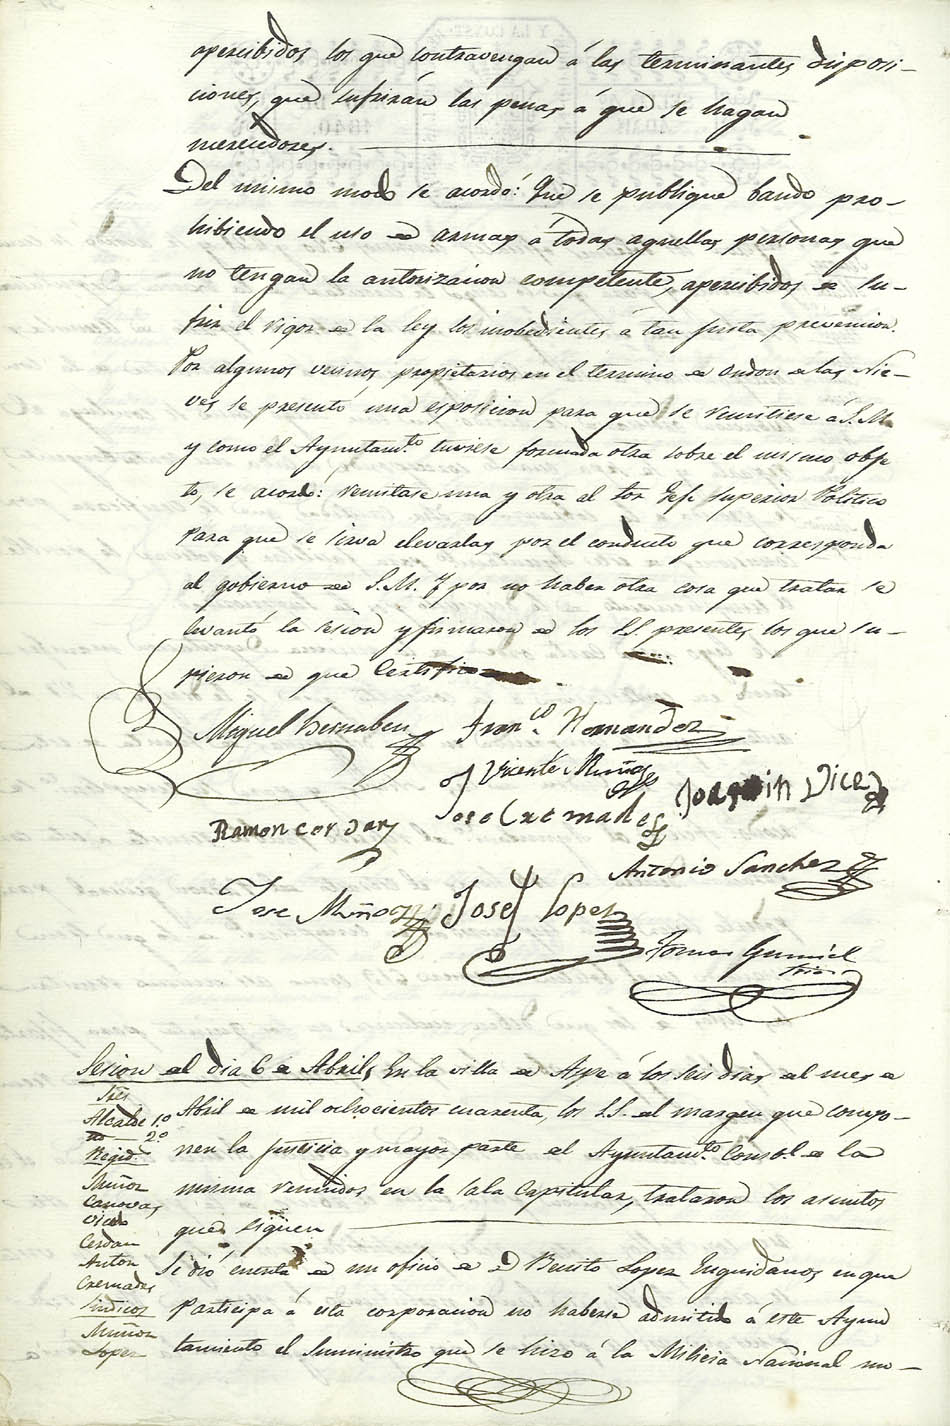 apercibidos los que contravengan á las terminantes disposi-
ciones, que sufrirán las penas á que se hagan
merecedores.
Del mismo modo se acordó: Que se publique bando pro-
hibiendo el uso de armas á todas aquellas personas que
no tengan la autorizacion competente, apercibidos de su-
frir el rigor de la ley los inobedientes á tan justa prevencion.
Por algunos vecinos propietarios en el termino de Ondon de las Nie-
ves se presentó una esposicion para que se remitiese á S.M.
y como el Ayuntam.to tuviese formada otra sobre el mismo obje
to, se acordó: remitase una y otra al Sor Gefe superior Politico
para que se sirva elevarlas por el conducto que corresponda
al gobierno de S.M. Y por no haber otra cosa que tratar se
levantó la sesion y firmaron de los S.S. presentes los que su-
pieron de que Certifico
Miguel Bernabeu Fran.co Hernandez
Vicente Muñoz
Ramon cerdan Jose Cremades Joaquin Vicedo
Antonio Sanchez
Jose Muñoz José Lopez
Tomas Gumiel
srio
Sesion del dia 6 de Abril, En la villa de Aspe á los seis dias del mes de
Abril de mil ochocientos cuarenta, los S.S. del margen que compo-
nen la Justicia y mayor parte del Ayuntam.to Consol. de la
misma reunidos en la sala Capitular, trataron los asuntos
que siguen
Sres
Alcalde 1.o
2.o
Regid.s
Muñoz
Canovas
Vicedo
Cerdan
Anton
Cremades
Sindicos
Muñoz
Lopez
Se dió cuenta de un oficio de D Benito Lopez Enguidanos en que
participa á esta corporacion no haberse admitido á este Ayun
tamiento el suministro que se hizo á la Milicia Nacional mo-